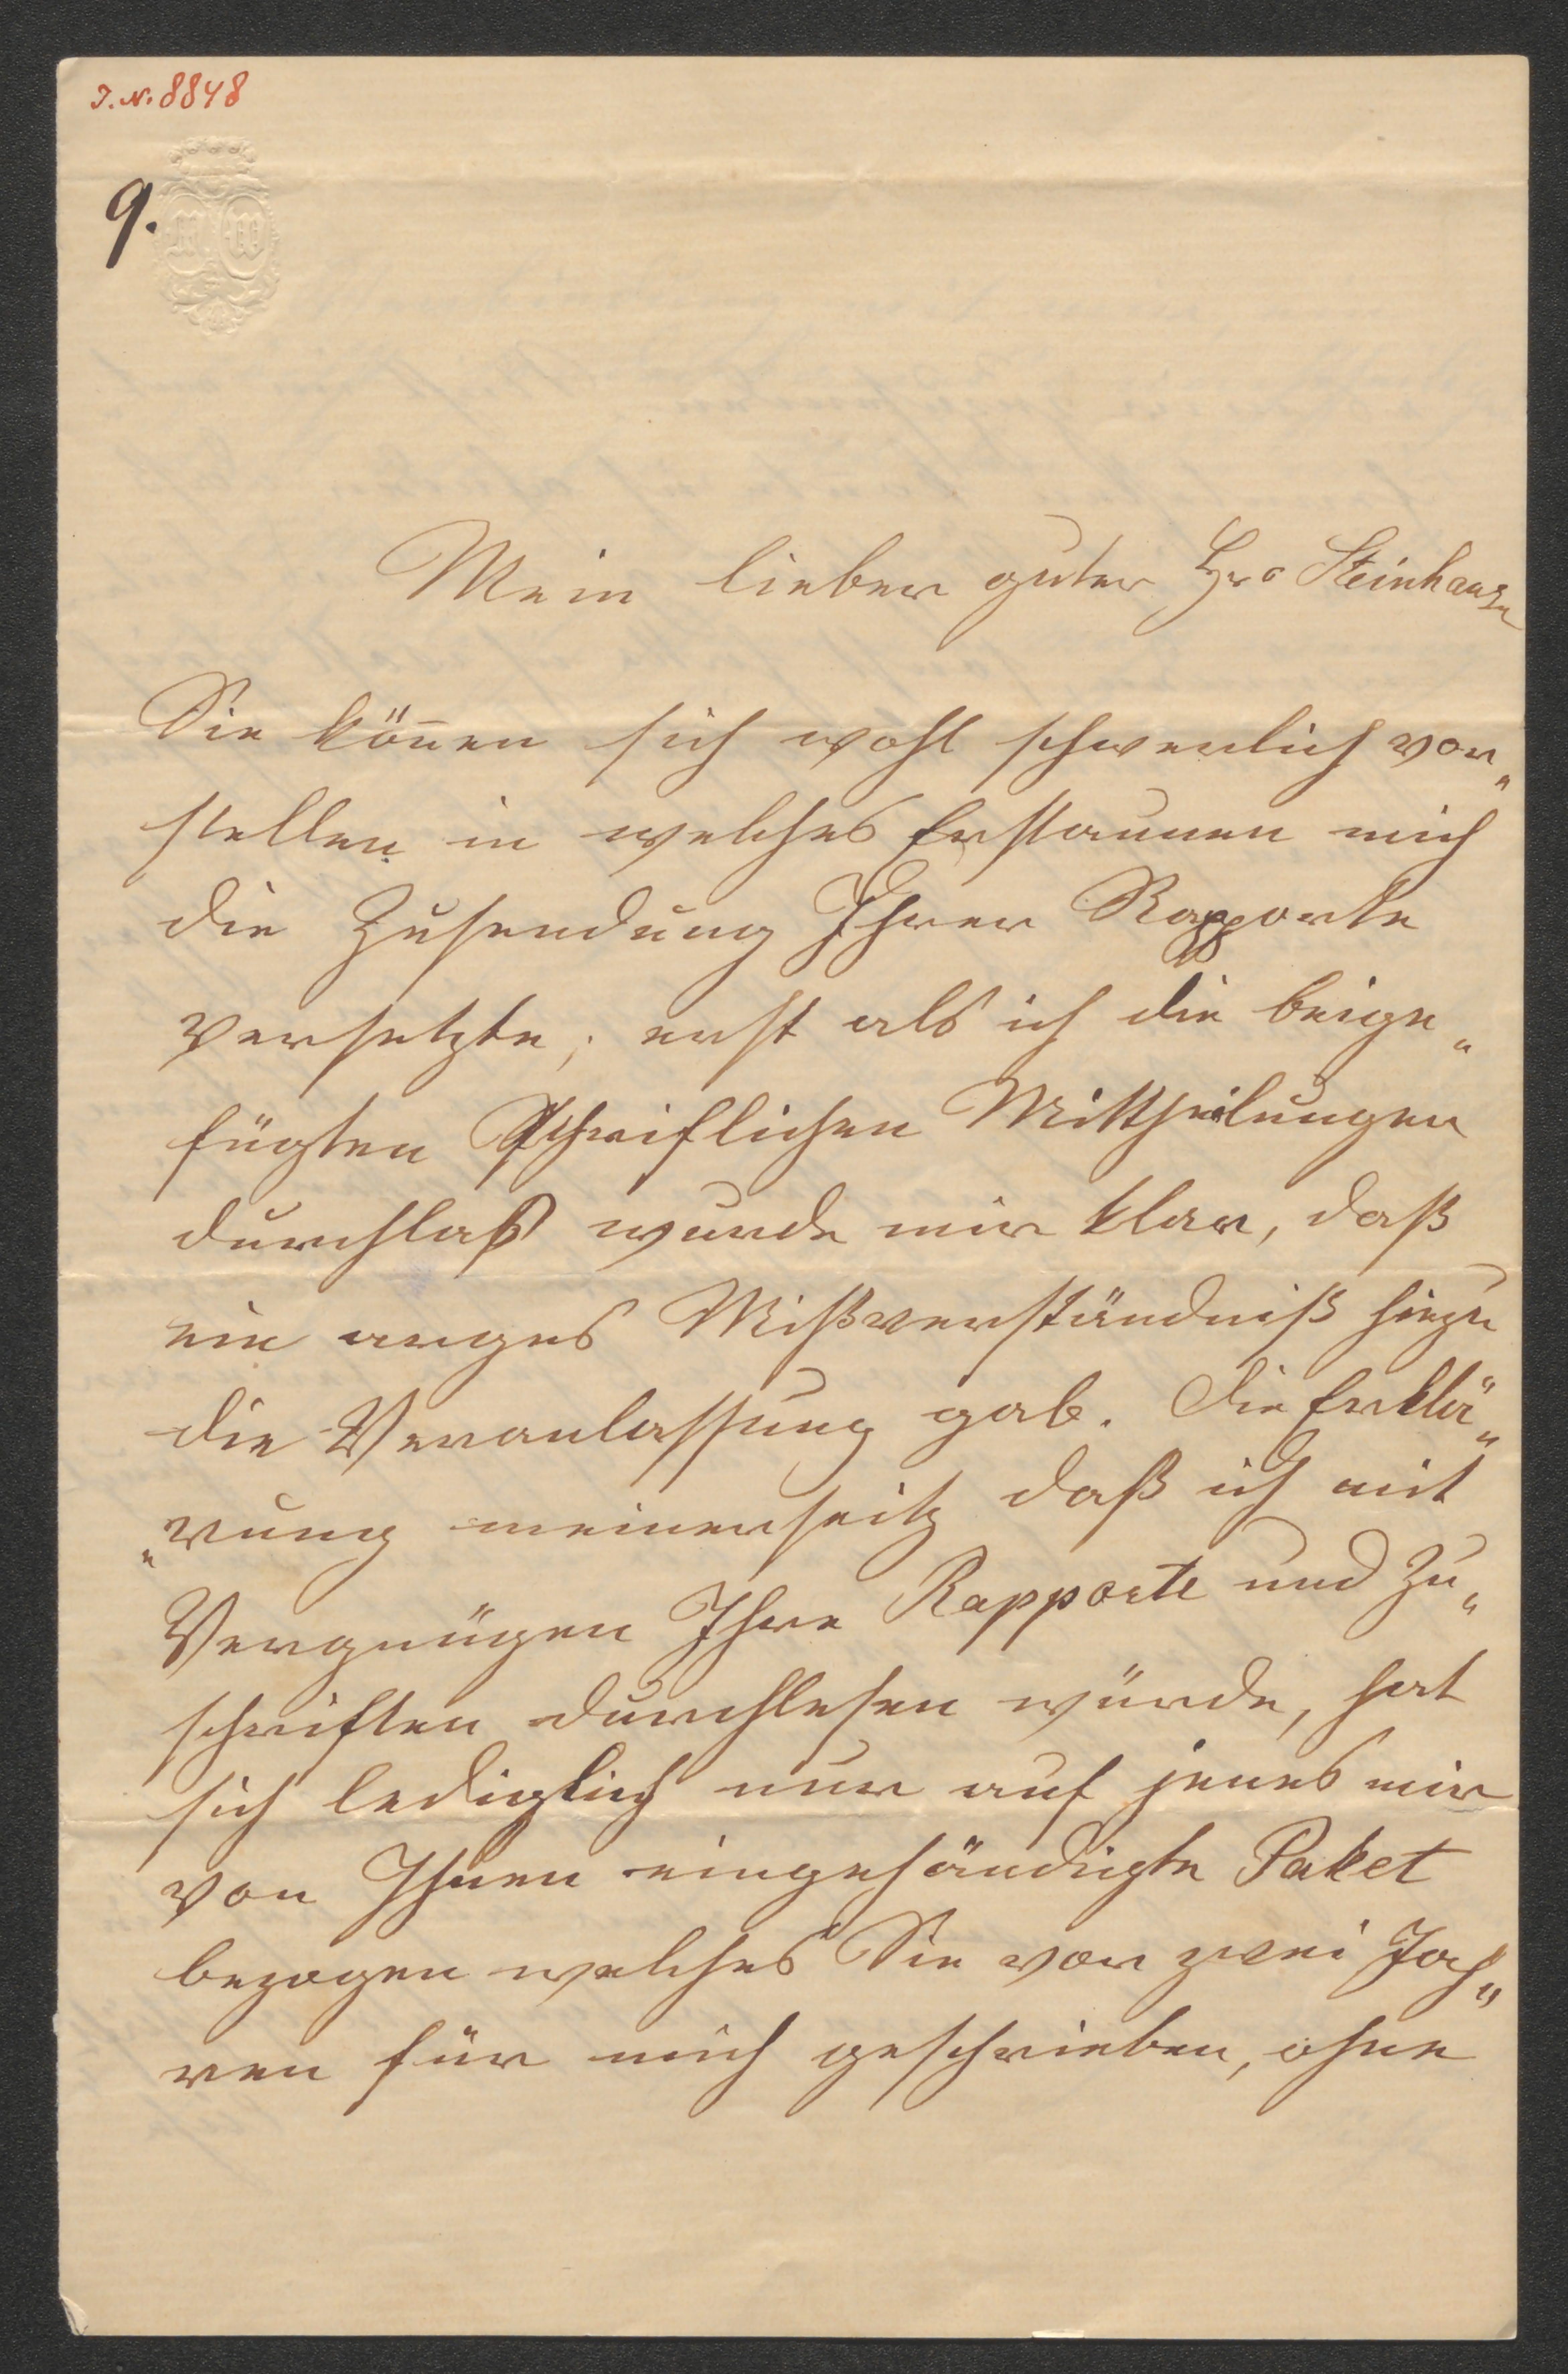 I.N. 8848
9.
Mein lieber guter Hr. Steinhauser
Sie können sich wohl schwerlich vor„
stellen in welches Erstaunen mich
die Zusendung Ihrer Rapporte
versetzte; erst als ich die beige„
fügten schriftlichen Mittheilungen
durchlas wurde mir klar, daß
ein arges Mißverständniß hiezu
die Veranlassung gab. Die Erklä„
„rung meinerseits daß ich mit
Vergnügen Ihre Rapporte und Zu„
schriften durchlesen würde, hat
sich lediglich nur auf jenes mir
von Ihnen eingehändigte Paket
bezogen welches Sie vor zwei Jah„
ren für mich geschrieben, ohne